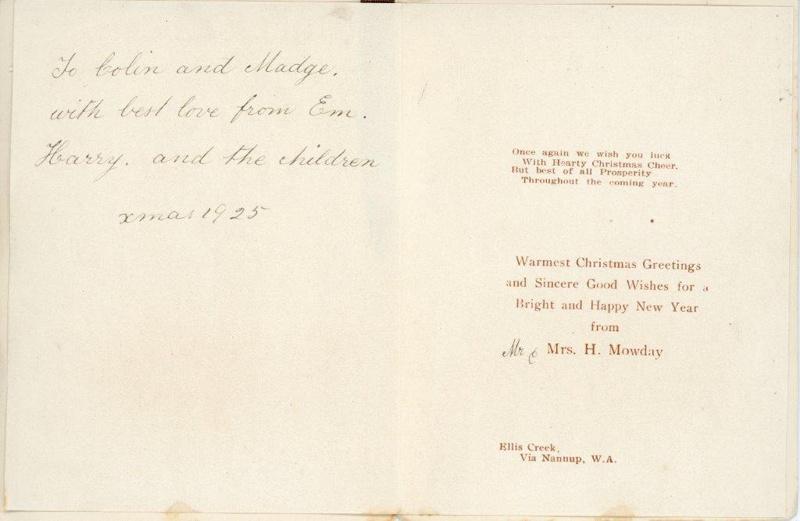 To Colin and Madge.
with best love from Em.
Harry. and the children
xmas 1925
Once again we wish you luck
With Hearty Christmas Cheer.
But best of all Prosperity
Throughout the coming year.
Warmest Christmas Greetings
and Sincere Good Wishes for a
Bright and Happy New Year
from
Mr & Mrs. H. Mowday
Ellis Creek,
Via Nannup, W.A.